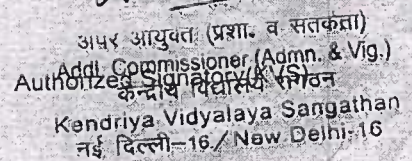 अपर आयुक्त (प्रशा. व सतर्कता)
Addl. Commissioner (Admn. & Vig.)
Authorized Signatory
केन्द्रीय विद्यालय संगठन
Kendriya Vidyalaya Sangathan
नई दिल्ली-16 / New Delhi-16